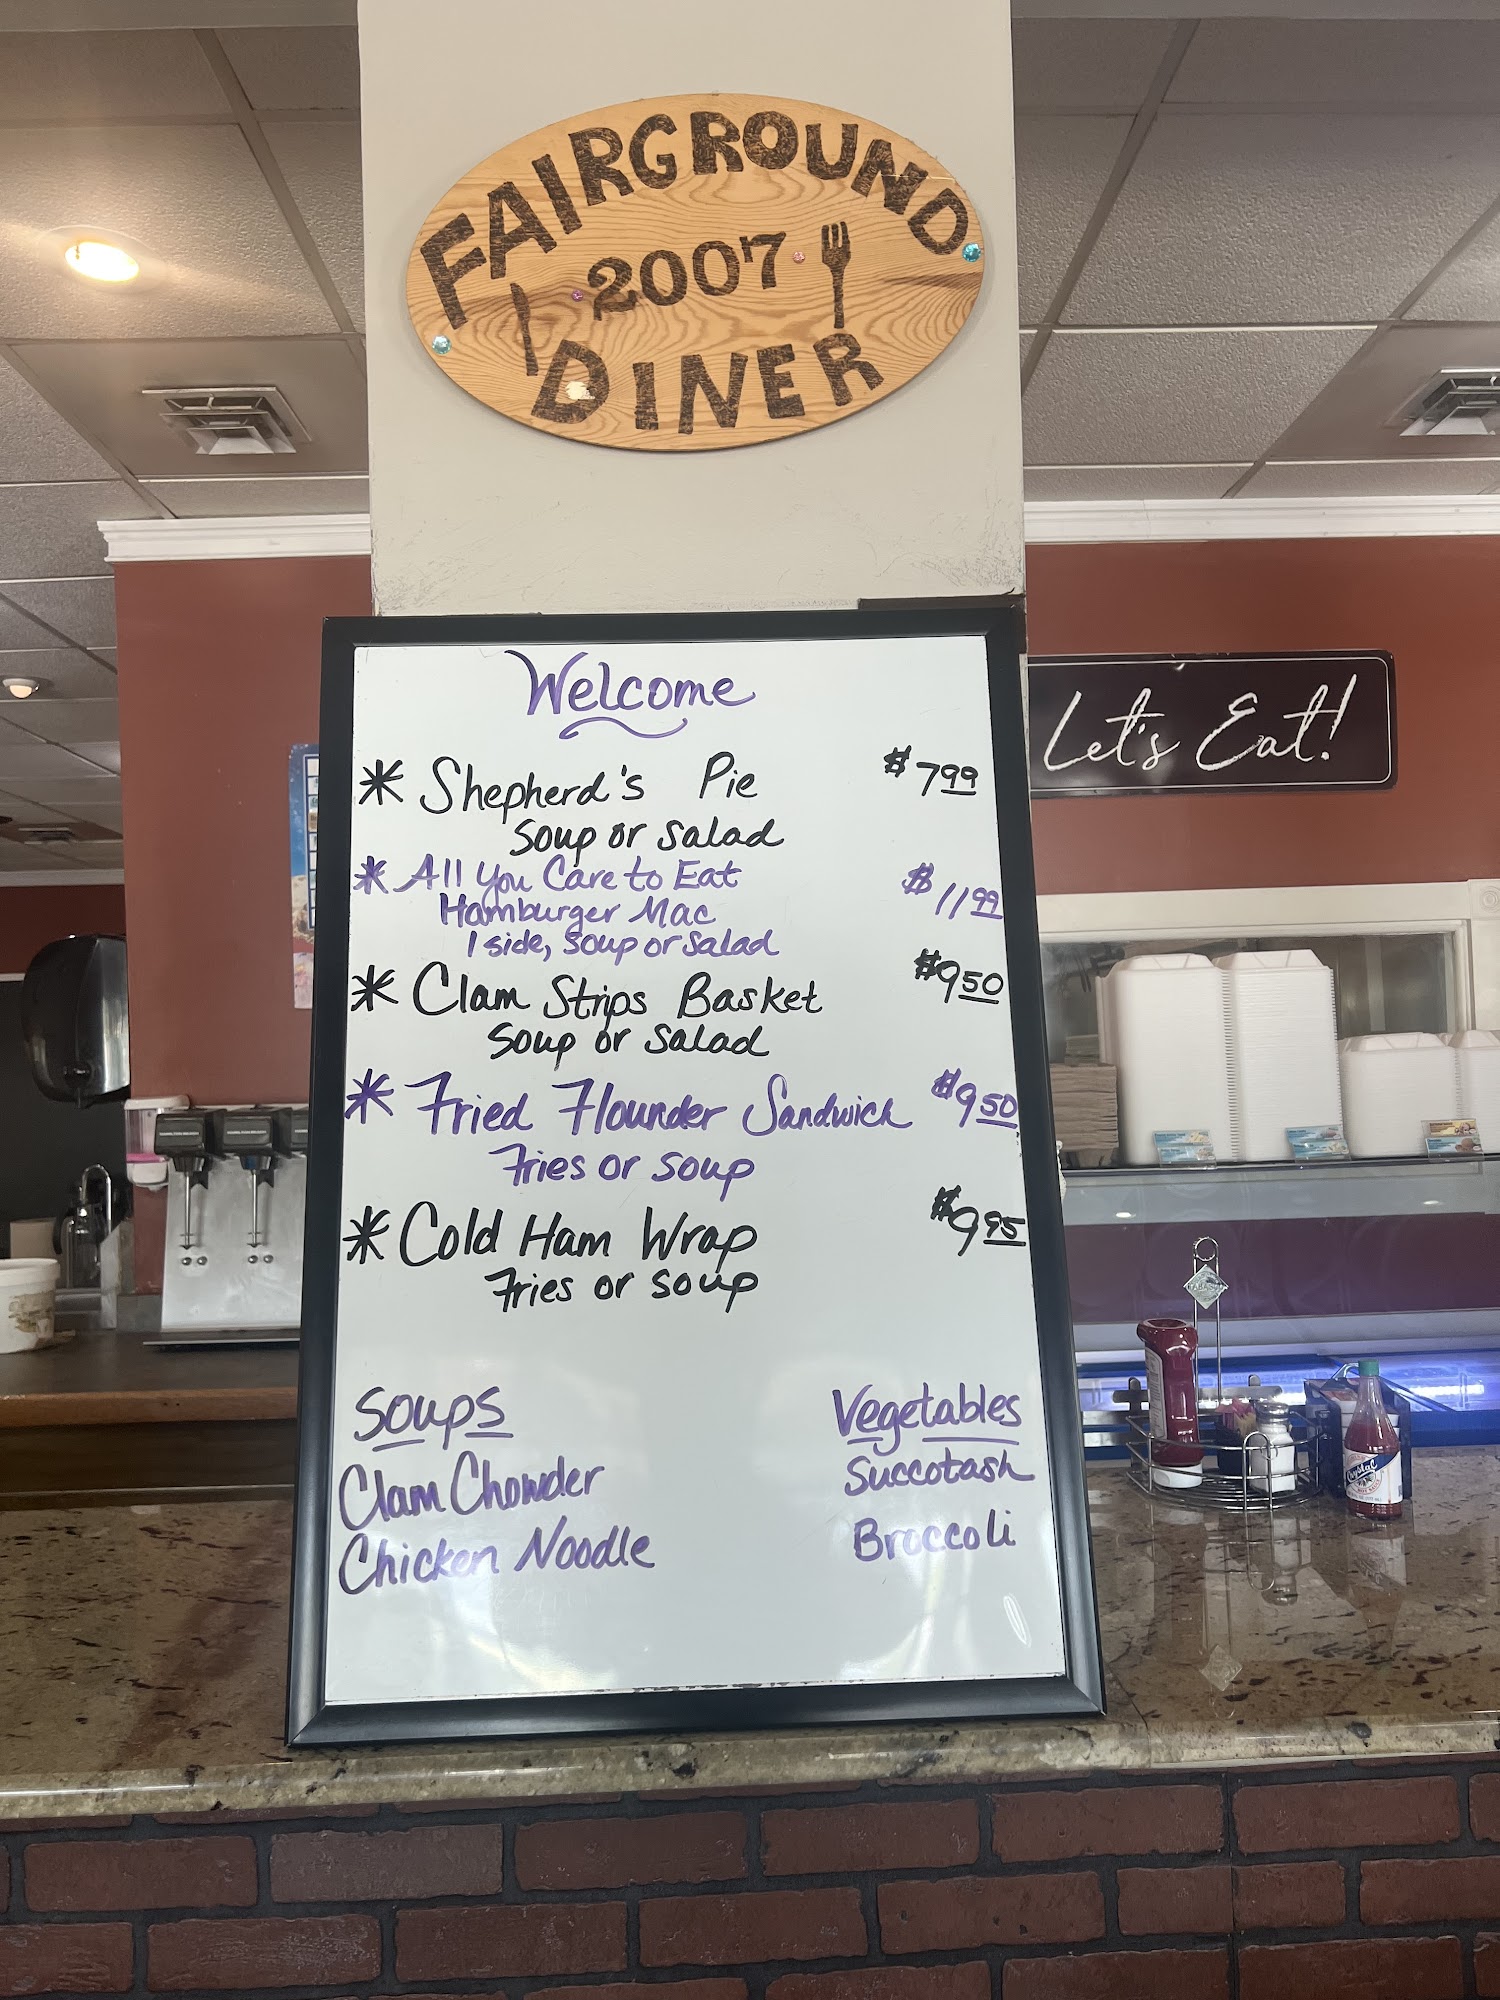 FAIRGROUND
2007
DINER
Welcome
* Shepherd's Pie $7.99
Soup or Salad
* All You Care to Eat $11.99
Hamburger Mac
1 side, soup or salad
* Clam Strips Basket $9.50
Soup or Salad
* Fried Flounder Sandwich $9.50
Fries or soup
* Cold Ham Wrap $9.95
Fries or soup
Soups
Clam Chowder
Chicken Noodle
Vegetables
Succotash
Broccoli
Let's Eat!
Crystal